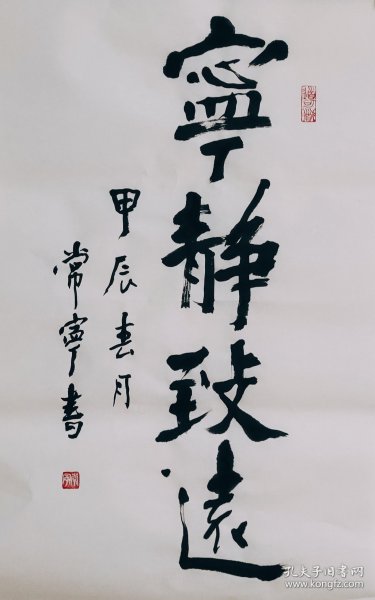 寧靜致遠
甲辰春月
常寧書
孔夫子旧书网
www.kongfz.com